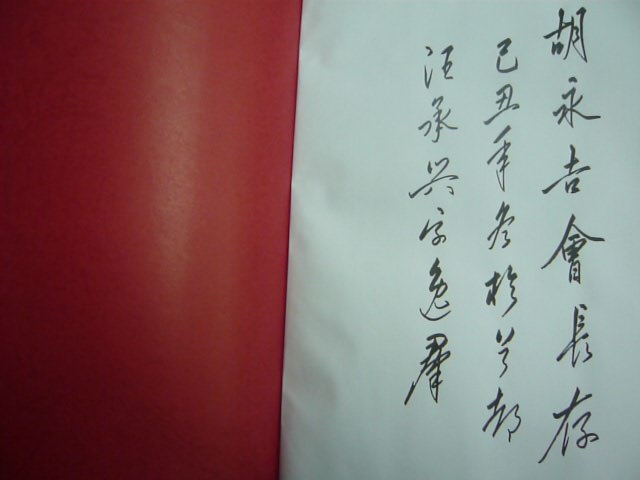 胡永吉會長存
己丑年冬於首都
汪承兴字逸羣